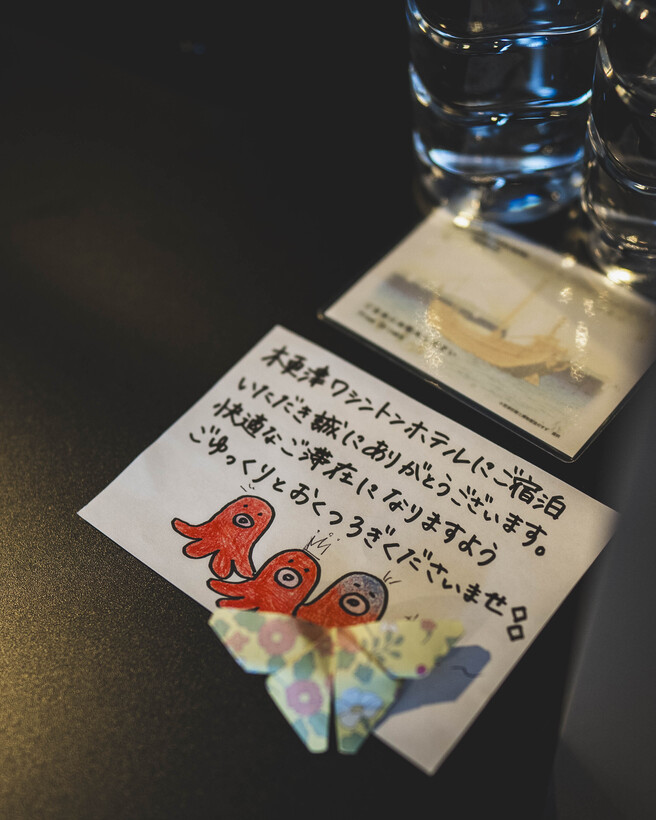 木更津ワシントンホテルにご宿泊
いただき誠にありがとうございます。
快適なご滞在になりますよう
ごゆっくりとおくつろぎくださいませ